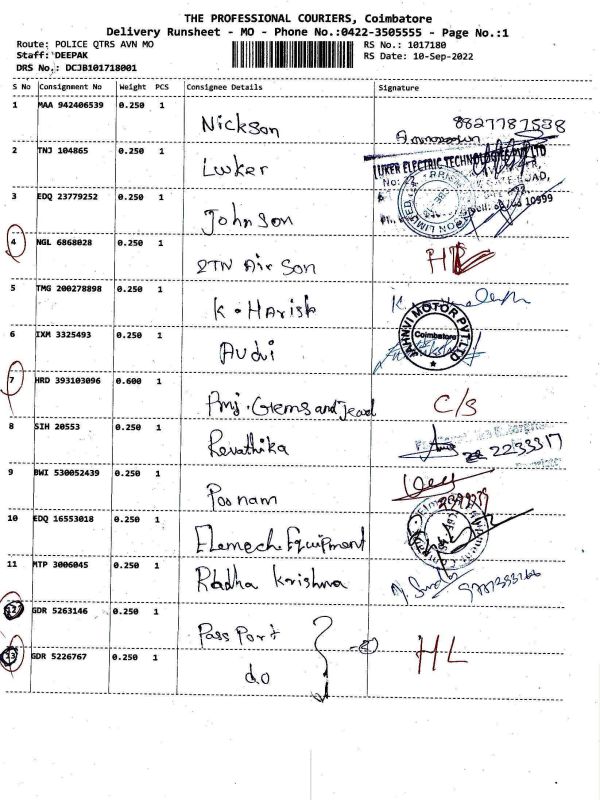 THE PROFESSIONAL COURIERS, Coimbatore
Delivery Runsheet - MO - Phone No.:0422-3505555 - Page No.:1
Route: POLICE QTRS AVN MO RS No.: 1017180
Staff: DEEPAK RS Date: 10-Sep-2022
DRS No.: DCJB101718001
S No Consignment No Weight PCS Consignee Details Signature
1 MAA 942406539 0.250 1 Nickson 8827787538
2 TNJ 104865 0.250 1 Luker LUKER ELECTRIC TECHNOLOGIES PVT LTD
3 EDQ 23779252 0.250 1 Johnson
4 NGL 6868028 0.250 1 2TN Air Son
5 TMG 200278898 0.250 1 K. Harish
6 IXM 3325493 0.250 1 Audi JAHNVI MOTOR PVT LTD Coimbatore
7 HRD 393103096 0.600 1 Pmj. Gems and Jewel C/S
8 SIH 20553 0.250 1 Revathika 2233317
9 BWI 530052439 0.250 1 Poonam
10 EDQ 16553018 0.250 1 Elemech Equipment
11 MTP 3006045 0.250 1 Radha Krishna
12 GDR 5263146 0.250 1 Pass Port
13 GDR 5226767 0.250 1 do HL